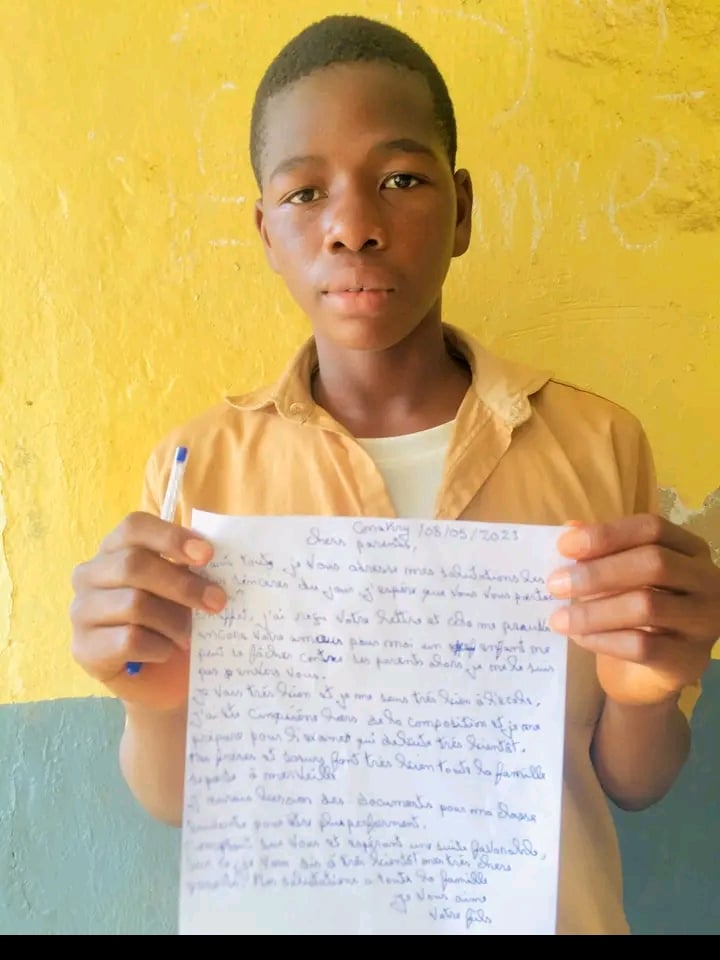 Conakry /08/05/2023
Chers parents,
Avant toute, je vous adresse mes salutations les
sincères du jour j'espère que vous vous portez
j'ai reçu votre lettre et cela me prouve
encore votre amour pour moi un enfant ne
peut se fâcher contre ses parents alors, je me suis
pas envers vous.
Je vais très bien et je me sens très bien à l'école,
j'ai été cinquième lors de la composition et je me
prépare pour l'examen qui débute très bientôt.
Mes frères et sœurs font très bien toute la famille
se porte à merveille
J'aurais besoin des documents pour ma classe
pour être plus performent.
Comptant sur vous et espérant une suite favorable,
sur ce, je vous dis à très bientôt mes très chers
parents. Mes salutations a toute la famille
Je vous aime
Votre fils
me